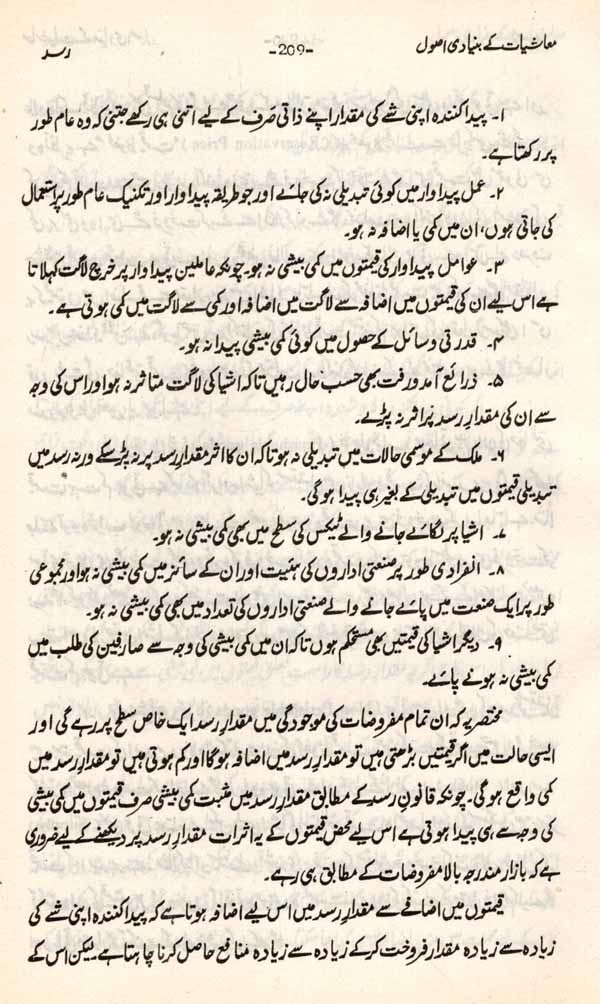 معاشیات کے بنیادی اصول -209- رسد
۱۔ پیدا کنندہ اپنی شے کی مقدار اپنے ذاتی صَرف کے لیے اتنی ہی رکھے جتنی کہ وہ عام طور
پر رکھتا ہے۔
۲۔ عمل پیداوار میں کوئی تبدیلی نہ کی جائے اور جو طریقہ پیداوار اور تکنیک عام طور پر استعمال
کی جاتی ہوں، ان میں کمی یا اضافہ نہ ہو۔
۳۔ عوامل پیداوار کی قیمتوں میں کمی بیشی نہ ہو۔ چونکہ عاملین پیداوار پر خرچ لاگت کہلاتا
ہے اس لیے ان کی قیمتوں میں اضافہ سے لاگت میں اضافہ اور کمی سے لاگت میں کمی ہوتی ہے۔
۴۔ قدرتی وسائل کے حصول میں کوئی کمی بیشی پیدا نہ ہو۔
۵۔ ذرائع آمدورفت بھی حسب حال رہیں تاکہ اشیا کی لاگت متاثر نہ ہو اور اس کی وجہ
سے ان کی مقدارِ رسد پر اثر نہ پڑے۔
۶۔ ملک کے موسمی حالات میں تبدیلی نہ ہو تاکہ ان کا اثر مقدارِ رسد پر نہ پڑ سکے ورنہ رسد میں
تبدیلی قیمتوں میں تبدیلی کے بغیر ہی پیدا ہو گی۔
۷۔ اشیا پر لگائے جانے والے ٹیکس کی سطح میں بھی کمی بیشی نہ ہو۔
۸۔ انفرادی طور پر صنعتی اداروں کی ہئیت اور ان کے سائز میں کمی بیشی نہ ہو اور مجموعی
طور پر ایک صنعت میں پائے جانے والے صنعتی اداروں کی تعداد میں بھی کمی بیشی نہ ہو۔
۹۔ دیگر اشیا کی قیمتیں بھی مستحکم ہوں تاکہ ان میں کمی بیشی کی وجہ سے صارفین کی طلب میں
کمی بیشی نہ ہونے پائے۔
مختصر یہ کہ ان تمام مفروضات کی موجودگی میں مقدارِ رسد ایک خاص سطح پر رہے گی اور
ایسی حالت میں اگر قیمتیں بڑھتی ہیں تو مقدارِ رسد میں اضافہ ہو گا اور کم ہوتی ہیں تو مقدارِ رسد میں
کمی واقع ہو گی۔ چونکہ قانونِ رسد کے مطابق مقدارِ رسد میں مثبت کمی بیشی صرف قیمتوں میں کمی بیشی
کی وجہ سے ہی پیدا ہوتی ہے اس لیے محض قیمتوں کے یہ اثرات مقدارِ رسد پر دیکھنے کے لیے ضروری
ہے کہ بازار مندرجہ بالا مفروضات کے مطابق ہی رہے۔
قیمتوں میں اضافے سے مقدارِ رسد میں اس لیے اضافہ ہوتا ہے کہ پیدا کنندہ اپنی شے کی
زیادہ سے زیادہ مقدار فروخت کر کے زیادہ سے زیادہ منافع حاصل کرنا چاہتا ہے۔ لیکن اس کے